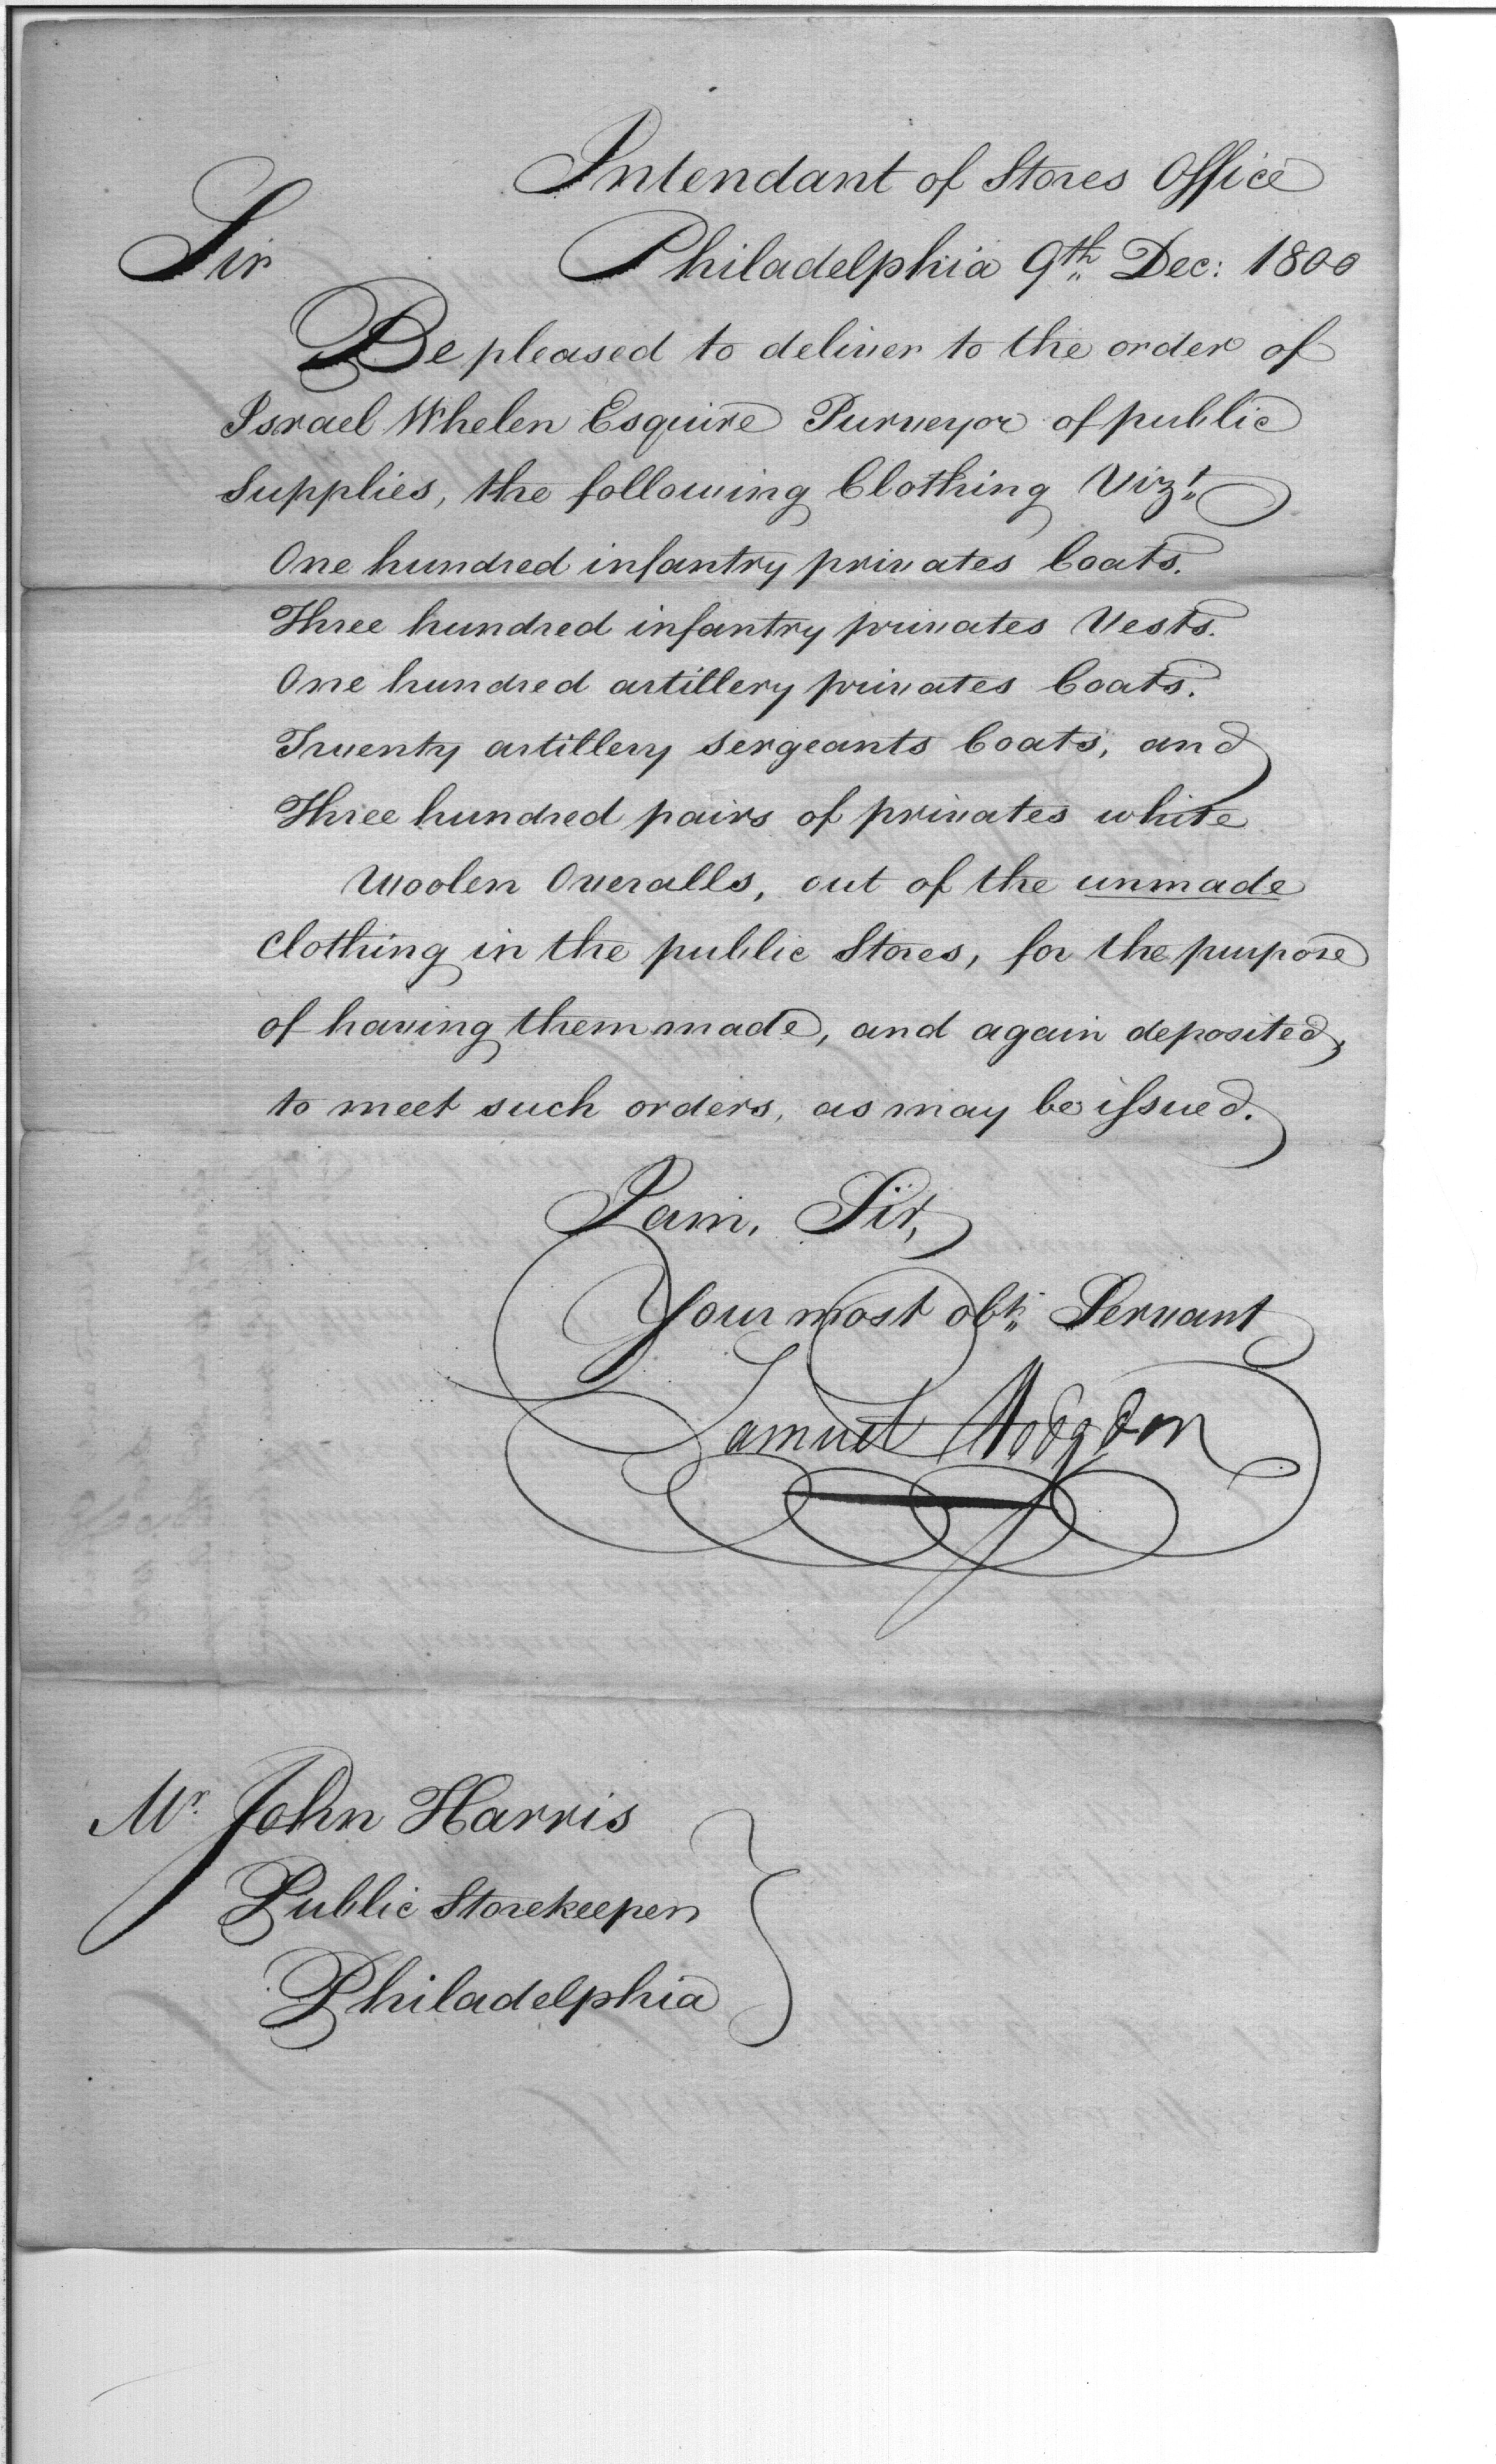 Intendant of Stores Office
Sir Philadelphia 9th Dec: 1800
Be pleased to deliver to the order of
Israel Whelen Esquire Purveyor of public
Supplies, the following Clothing Vizt
One hundred infantry privates Coats.
Three hundred infantry privates Vests.
One hundred artillery privates Coats.
Twenty artillery sergeants Coats, and
Three hundred pairs of privates white
Woolen Overalls, out of the unmade
Clothing in the public Stores, for the purpose
of having them made, and again deposited,
to meet such orders, as may be issued.
I am, Sir,
Your most obt. Servant
Samuel Hodgdon
Mr. John Harris
Public Storekeeper
Philadelphia